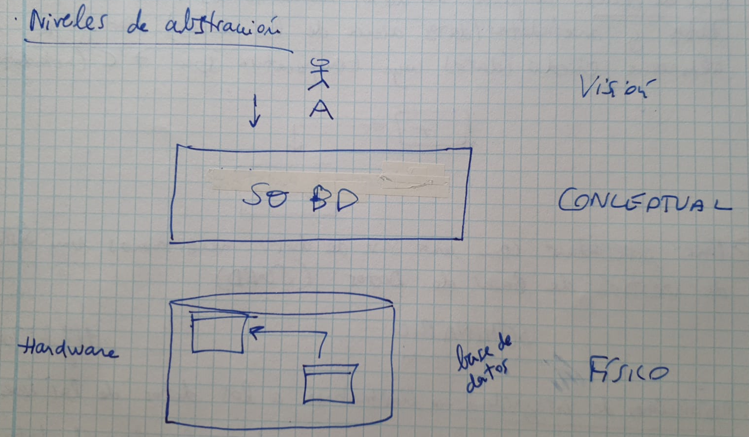 · Niveles de abstracción
A
Visión
SG BD
CONCEPTUAL
Hardware
base de
datos
FÍSICO